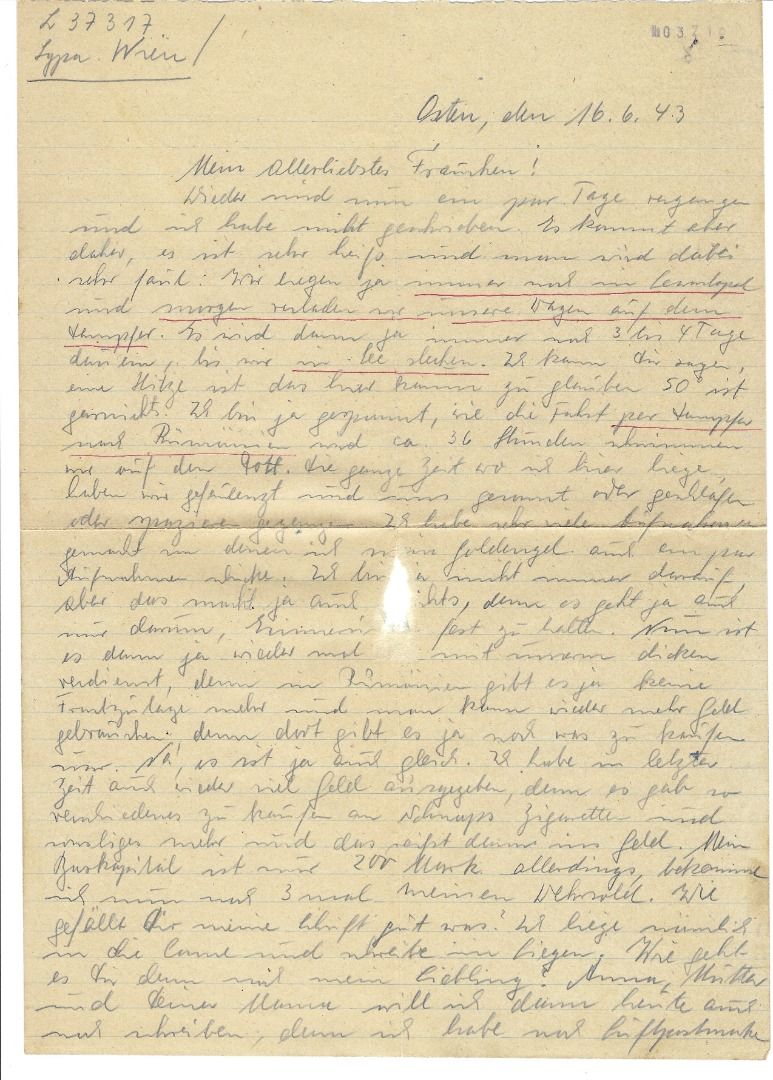 L 37317
Lgpa. Wien
Osten, den 16.6.43
Mein Allerliebstes Frauchen!
Wieder sind nun ein par Tage vergangen
und ich habe nicht geschrieben. Es kommt aber
daher, es ist sehr heiß und man wird dabei
sehr faul. Wir liegen ja immer noch in Sewastopol
und morgen verladen wir unsere Wagen auf dem
Dampfer. Es wird dann ja immer noch 3 bis 4 Tage
dauern, bis wir in See stechen. Ich kann Dir sagen,
eine Hitze ist das hier kaum zu glauben 50° ist
garnichts. Ich bin ja gespannt, wie die Fahrt per Dampfer
nach Rumänien wird ca. 36 Stunden schwimmen
wir auf den Pott. Die ganze Zeit wo ich hier liege,
haben wir gefaulenzt und uns gesonnt oder geschlafen
oder spazieren gegangen. Ich habe sehr viele Aufnahmen
gemacht von denen ich mein Goldengel auch ein par
Aufnahmen schicke. Ich bin ja nicht immer darauf,
aber das macht ja auch nichts, denn es geht ja auch
nur darum, fest zu halten. Nun ist
es dann ja wieder mal mit unsern dicken
verdienst, denn in Rumänien gibt es ja keine
Frontzulage mehr und man kann wieder mehr Geld
gebrauchen, denn dort gibt es ja noch was zu kaufen
usw. Na, es ist ja auch gleich. Ich habe in letzter
Zeit auch wieder viel Geld ausgegeben, denn es gab so
verschiedenes zu kaufen an Schnaps Zigaretten und
sonstiges mehr und das reißt dann ins Geld. Mein
Barkapital ist nur 200 Mark allerdings, bekomme
ich nun noch 3 mal meinen Wehrsold. Wie
gefällt Dir meine Schrift gut was? Ich liege nämlich
in die Sonne und schreibe im liegen. Wie geht
es Dir denn noch mein Liebling? Anna, Mutter
und Deiner Mama will ich dann heute auch
noch schreiben, denn ich habe noch Luftpostmarke